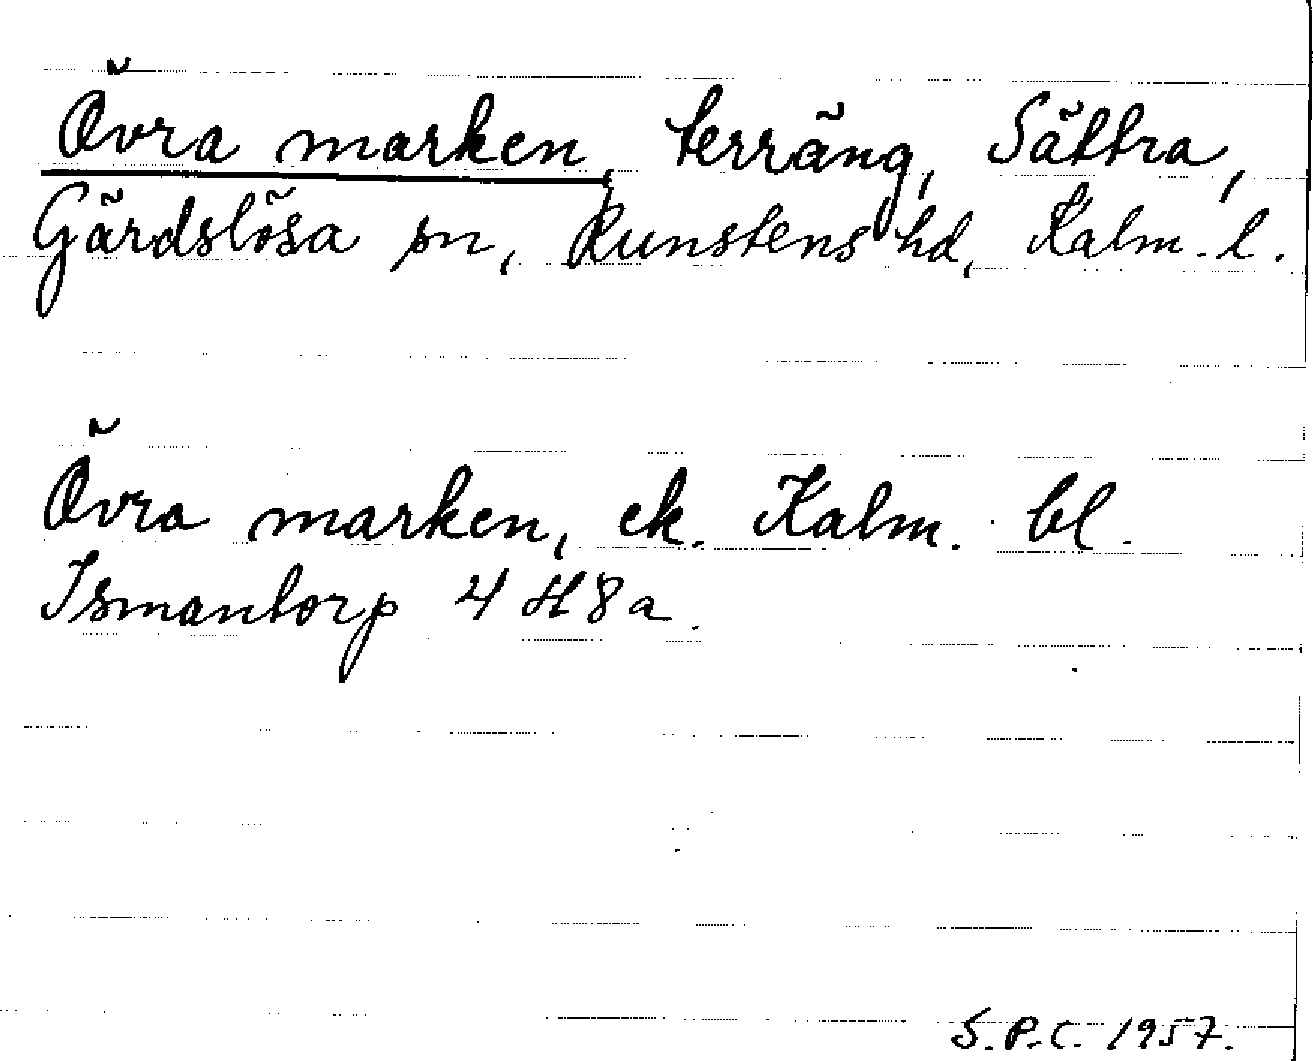 Övra marken, terräng, Sättra,
Gärdslösa sn, Runstens hd, Kalm. l.
Övra marken, ek. Kalm. bl.
Ismantorp 4 H 8 a.
S.P.C. 1957.